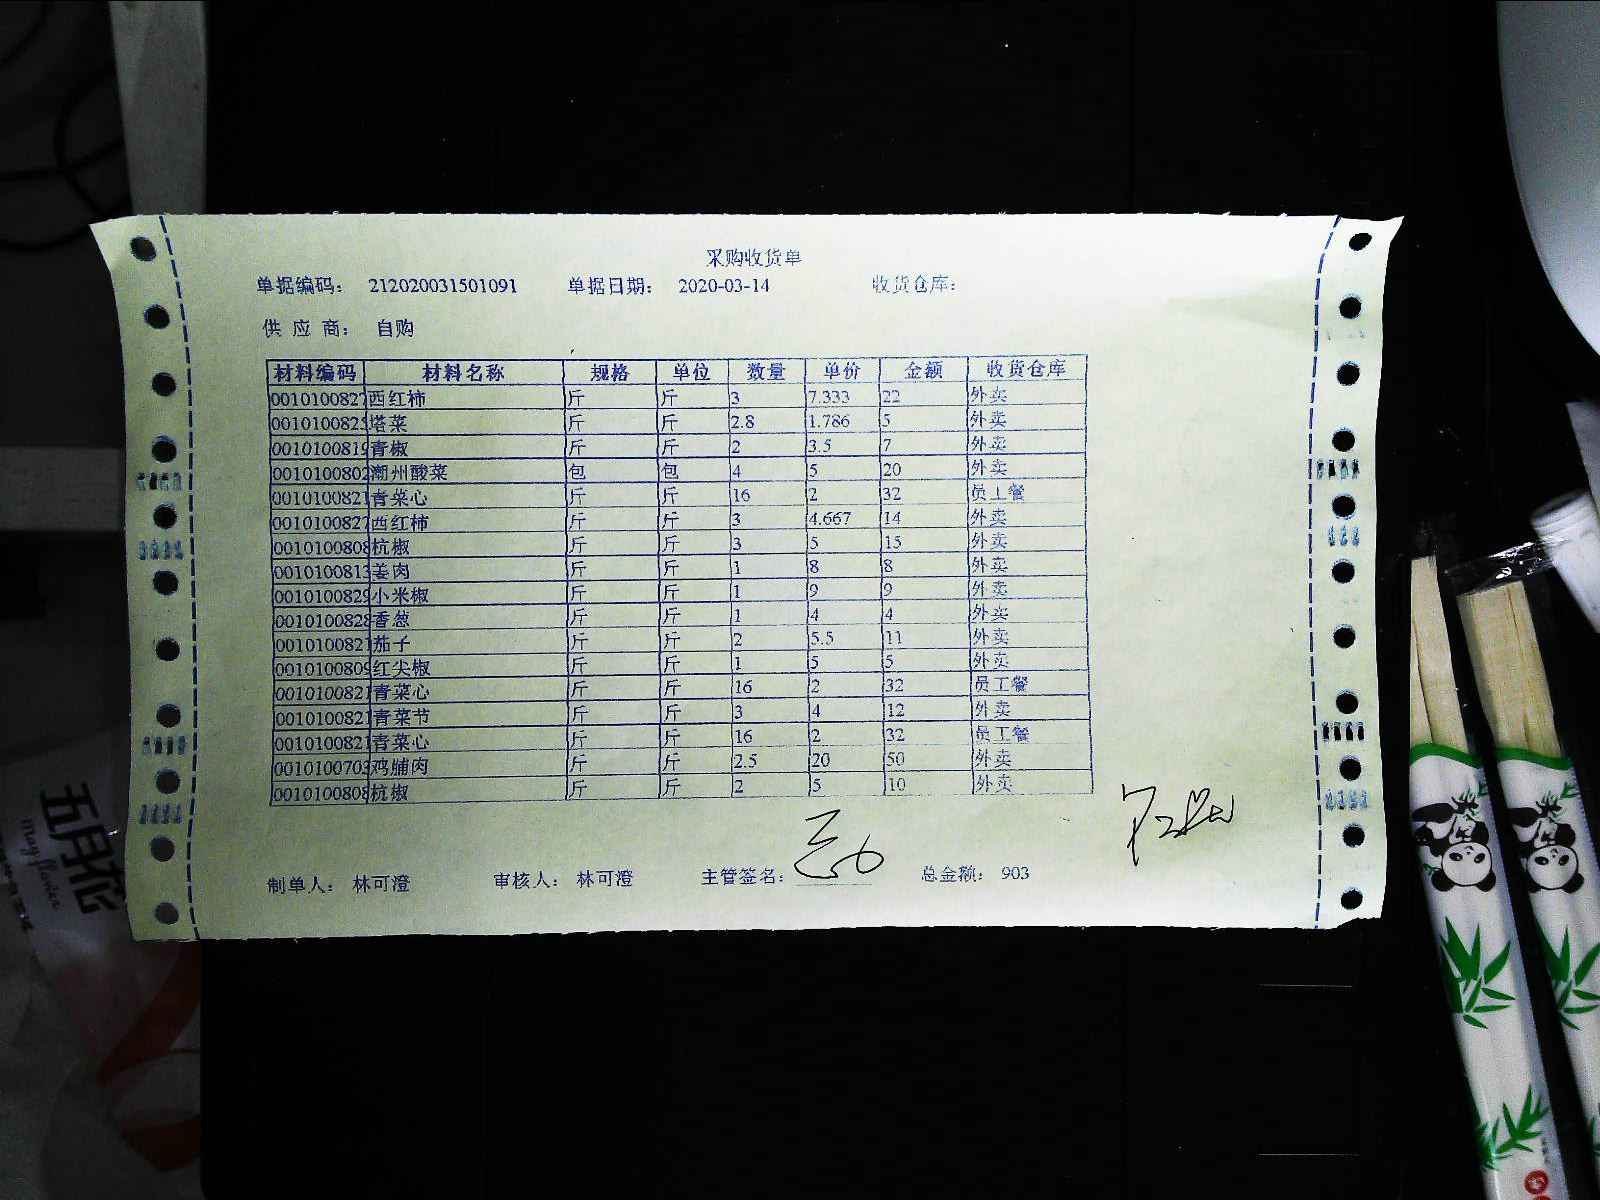 采购收货单
单据编码： 212020031501091 单据日期： 2020-03-14 收货仓库：
供 应 商： 自购
材料编码 材料名称 规格 单位 数量 单价 金额 收货仓库
0010100827 西红柿 斤 斤 3 7.333 22 外卖
0010100825 塔菜 斤 斤 2.8 1.786 5 外卖
0010100819 青椒 斤 斤 2 3.5 7 外卖
0010100802 潮州酸菜 包 包 4 5 20 外卖
0010100821 青菜心 斤 斤 16 2 32 员工餐
0010100827 西红柿 斤 斤 3 4.667 14 外卖
0010100808 杭椒 斤 斤 3 5 15 外卖
0010100813 姜肉 斤 斤 1 8 8 外卖
0010100829 小米椒 斤 斤 1 9 9 外卖
0010100828 香葱 斤 斤 1 4 4 外卖
0010100821 茄子 斤 斤 2 5.5 11 外卖
0010100809 红尖椒 斤 斤 1 5 5 外卖
0010100821 青菜心 斤 斤 16 2 32 员工餐
0010100821 青菜节 斤 斤 3 4 12 外卖
0010100821 青菜心 斤 斤 16 2 32 员工餐
0010100703 鸡脯肉 斤 斤 2.5 20 50 外卖
0010100808 杭椒 斤 斤 2 5 10 外卖
制单人： 林可澄 审核人： 林可澄 主管签名： 总金额： 903
五月花
May flower